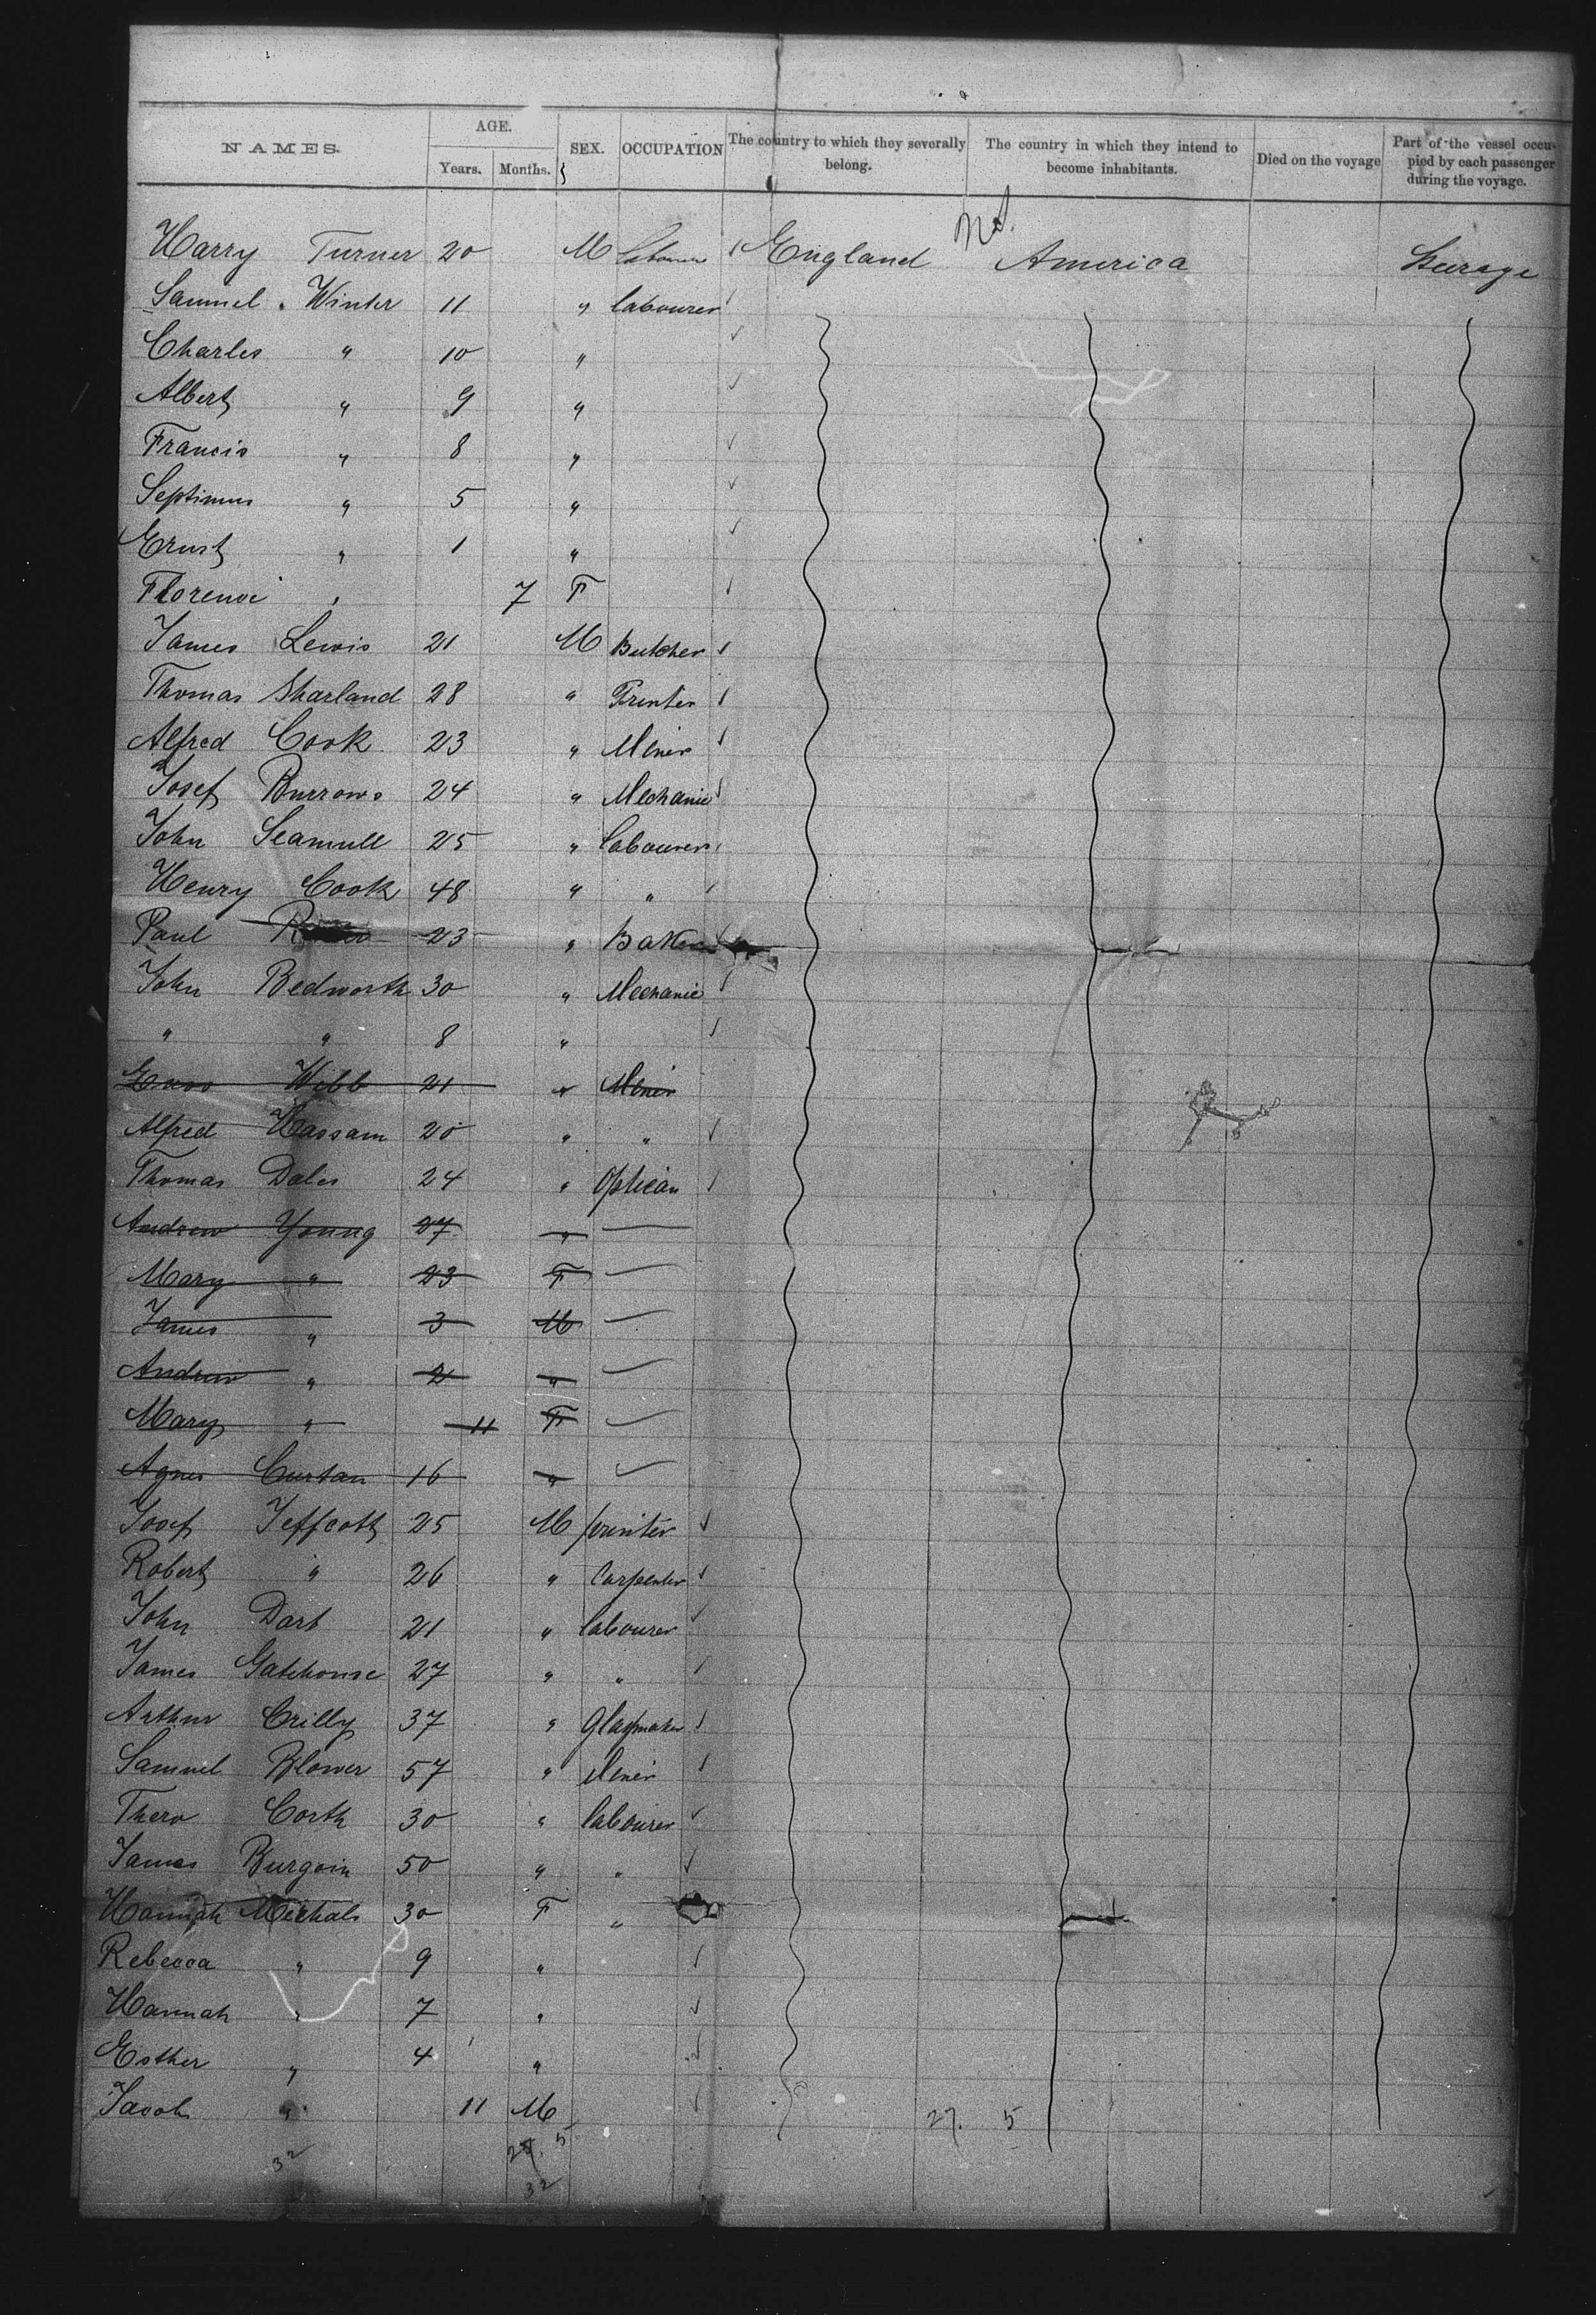 NAMES. AGE. Years. Months. SEX. OCCUPATION The country to which they severally belong. The country in which they intend to become inhabitants. Died on the voyage Part of the vessel occupied by each passenger during the voyage.
Harry Turner 20 M Labourer England N.S. America Steerage
Samuel Winter 11 " labourer
Charles " 10 "
Albert " 9 "
Francis " 8 "
Septimus " 5 "
Ernst " 1 "
Florence " 7 F
James Lewis 21 M Butcher
Thomas Sharland 28 " Printer
Alfred Cook 23 " Miner
Josef Burrows 24 " Mechanic
John Seamull 25 " Labourer
Henry Cook 48 " "
Paul 23 " Baker
John Bedworth 30 " Mechanic
" " 8 "
Webb 21 " Miner
Alfred Hassam 20 " "
Thomas Dales 24 " Optican
Andrew Young 27 "
Mary " 23 F
James " 3 M
Andrew " 2 "
Mary " 11 F
Agnes Curtan 16 "
Josef Jeffcott 25 M printer
Robert " 26 " Carpenter
John Dart 21 " labourer
James Gatehouse 27 " "
Arthur Crilly 37 "
Samuel Blower 57 " Miner
Thero Corth 30 " labourer
James Burgoin 50 " "
Hannah Michals 30 F "
Rebecca " 9 "
Hannah " 7 "
Esther " 4 "
Jacob " 11 M
27. 5
32 27. 5
32